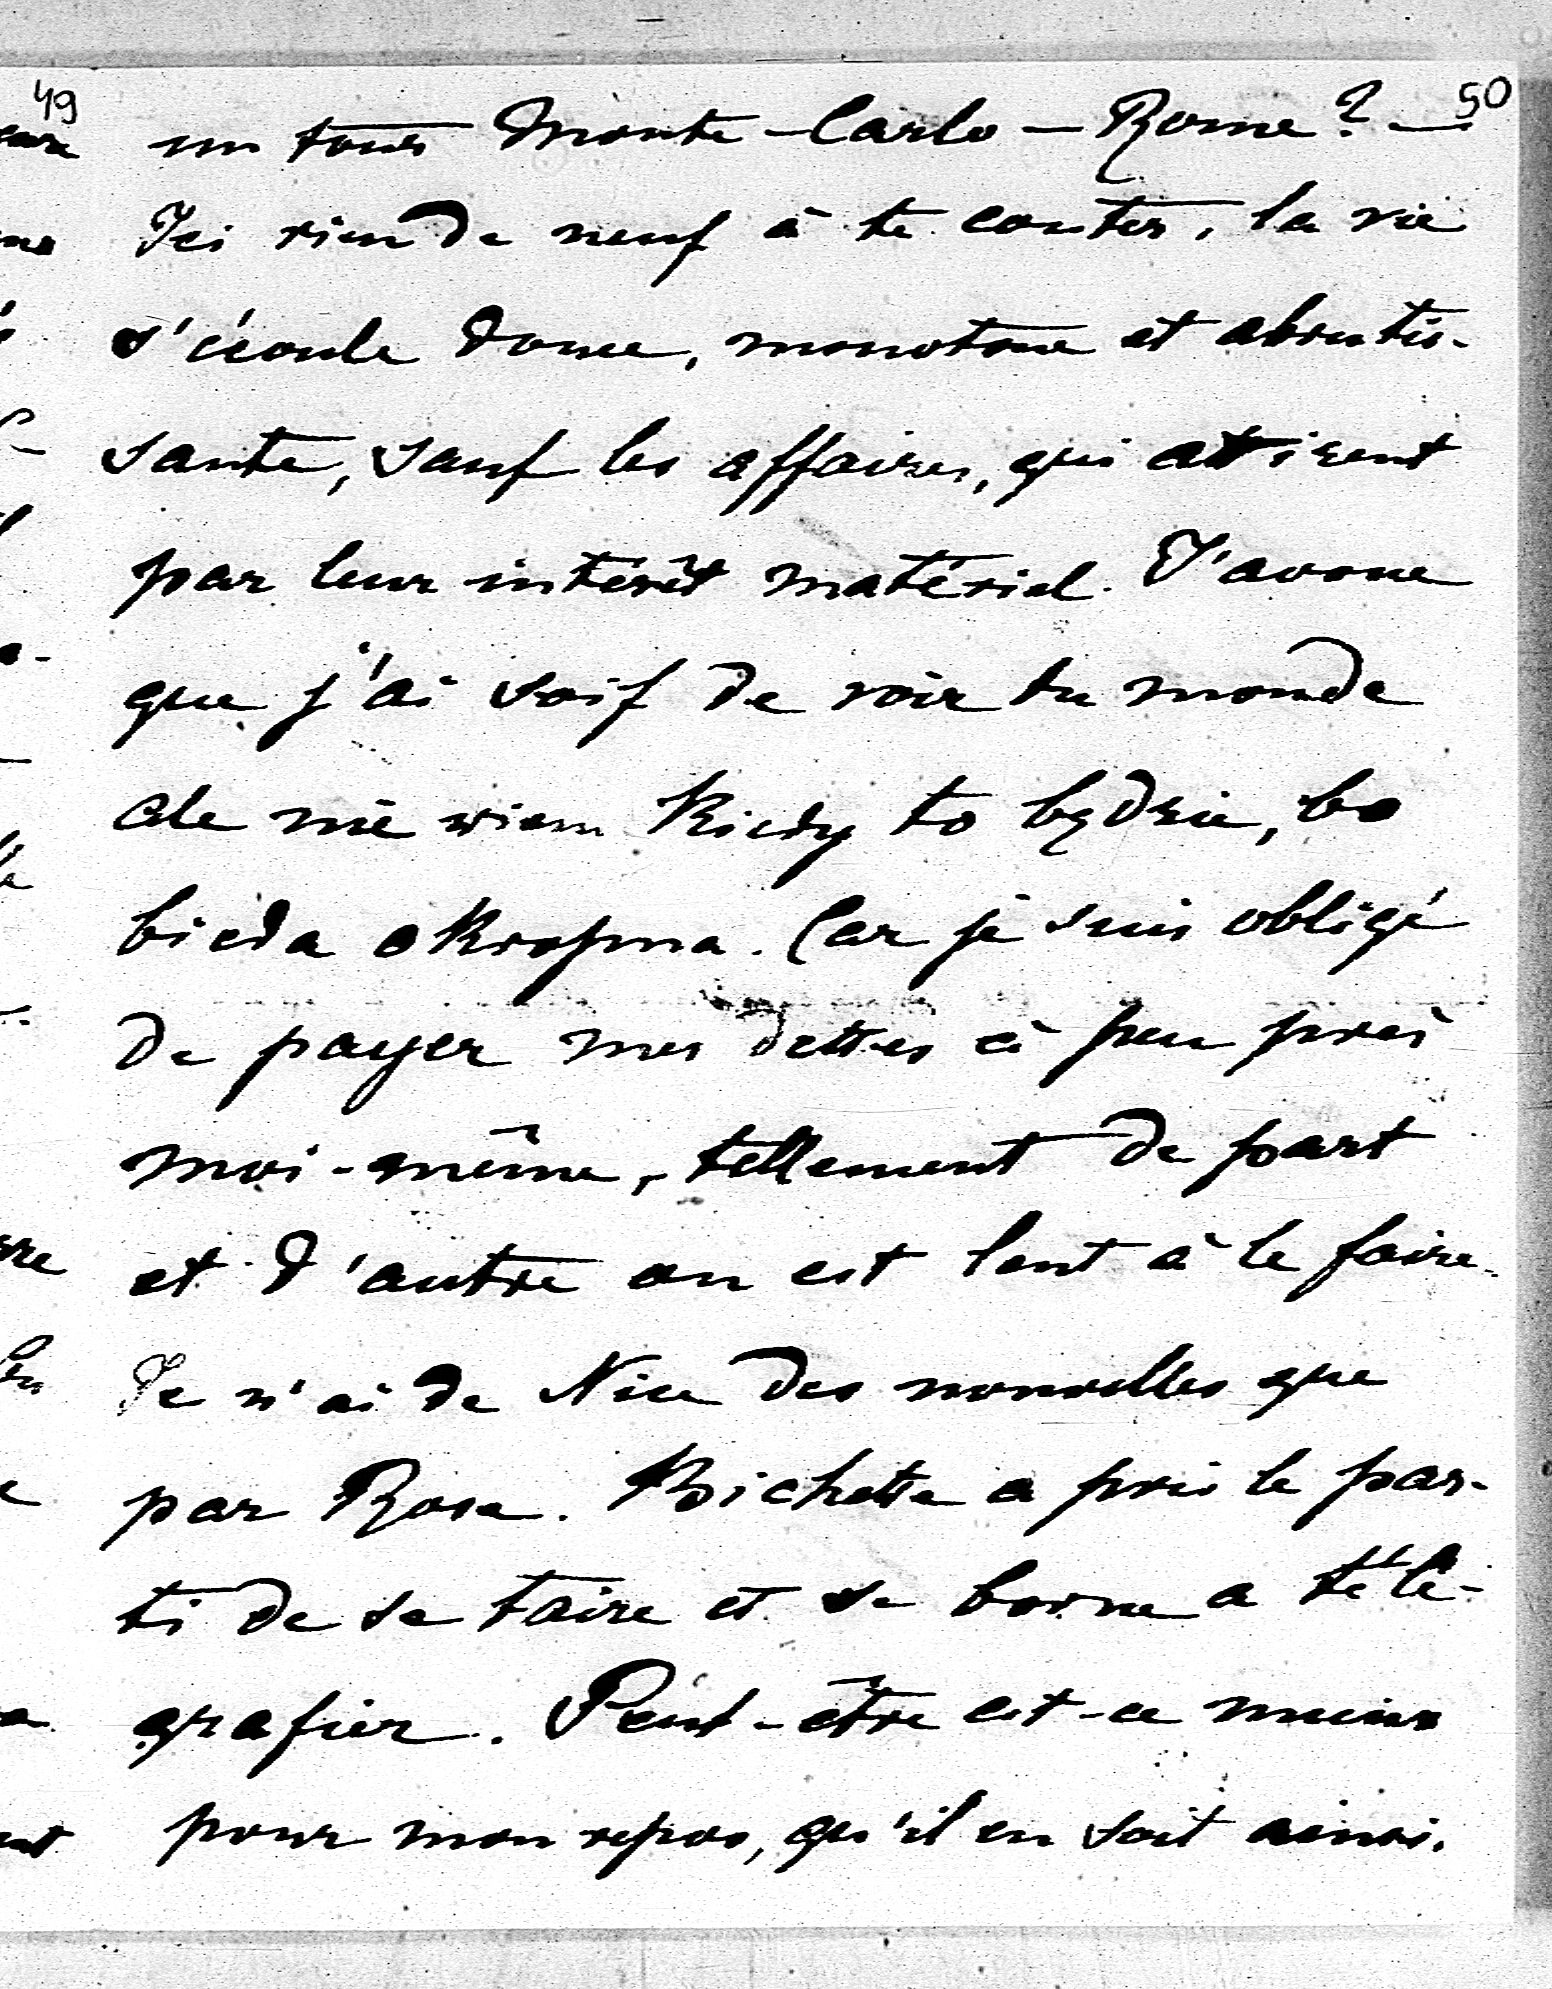 49
50
un tour Monte-Carlo – Rome? –
Ici rien de neuf à te conter, la vie
s'écoule douce, monotone et abrutis-
sante, sauf les affaires, qui attirent
par leur intérêt matériel. J'avoue
que j'ai soif de voir du monde
ale nie wiem kiedy to będzie, bo
bieda okropna. Car je suis obligé
de payer mes dettes à peu près
moi-même, tellement de part
et d'autre on est lent à le faire.
Je n'ai de Nice des nouvelles que
par Rose. Bichette a pris le par-
ti de se taire et se borne a télé-
grafier. Peut-être est-ce mieux
pour mon repos, qu'il en soit ainsi.